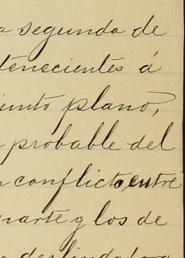 a segunda de
tenscientés á
junto plano,
probable del
conflicto entre
parte y los de
deslindadora